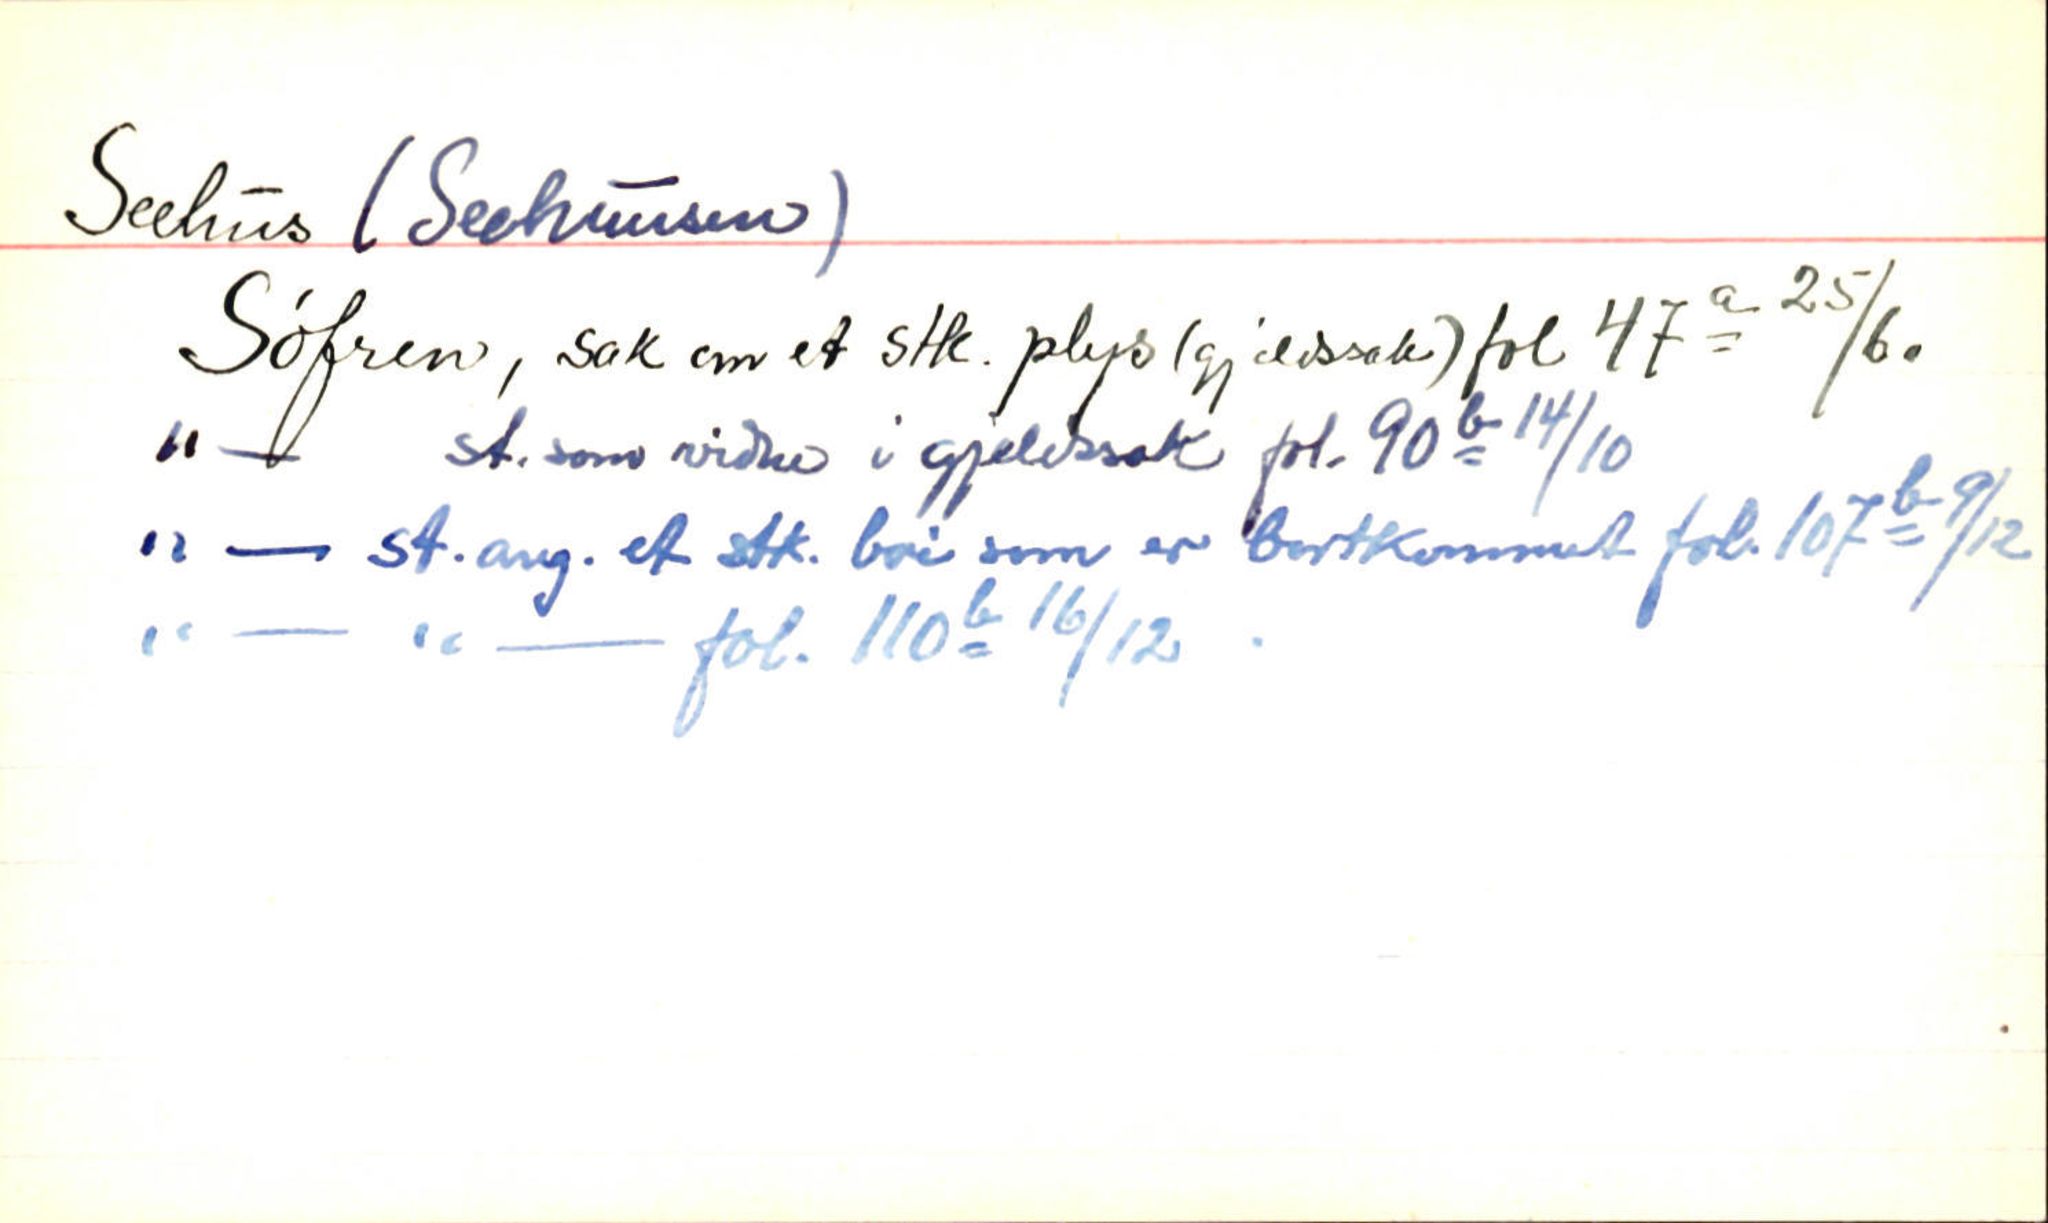 Seehūs (Seehuūsen)
Søfren, sak om et stk. plys (gjeldssak) fol 47 a 25/6.
" — st. som vidne i gjeldssak fol. 90 b 14/10
" — st. ang. et stk. boi som er bortkommet fol. 107 b 9/12
" — " — fol. 110 b 16/12.